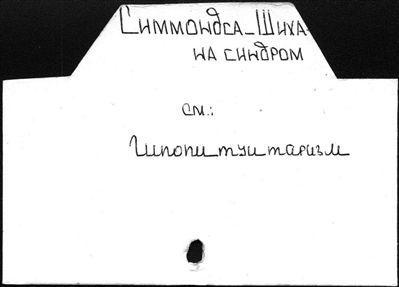 Симмондса-Шиха-
на синдром
см.:
Гипопитуитаризм